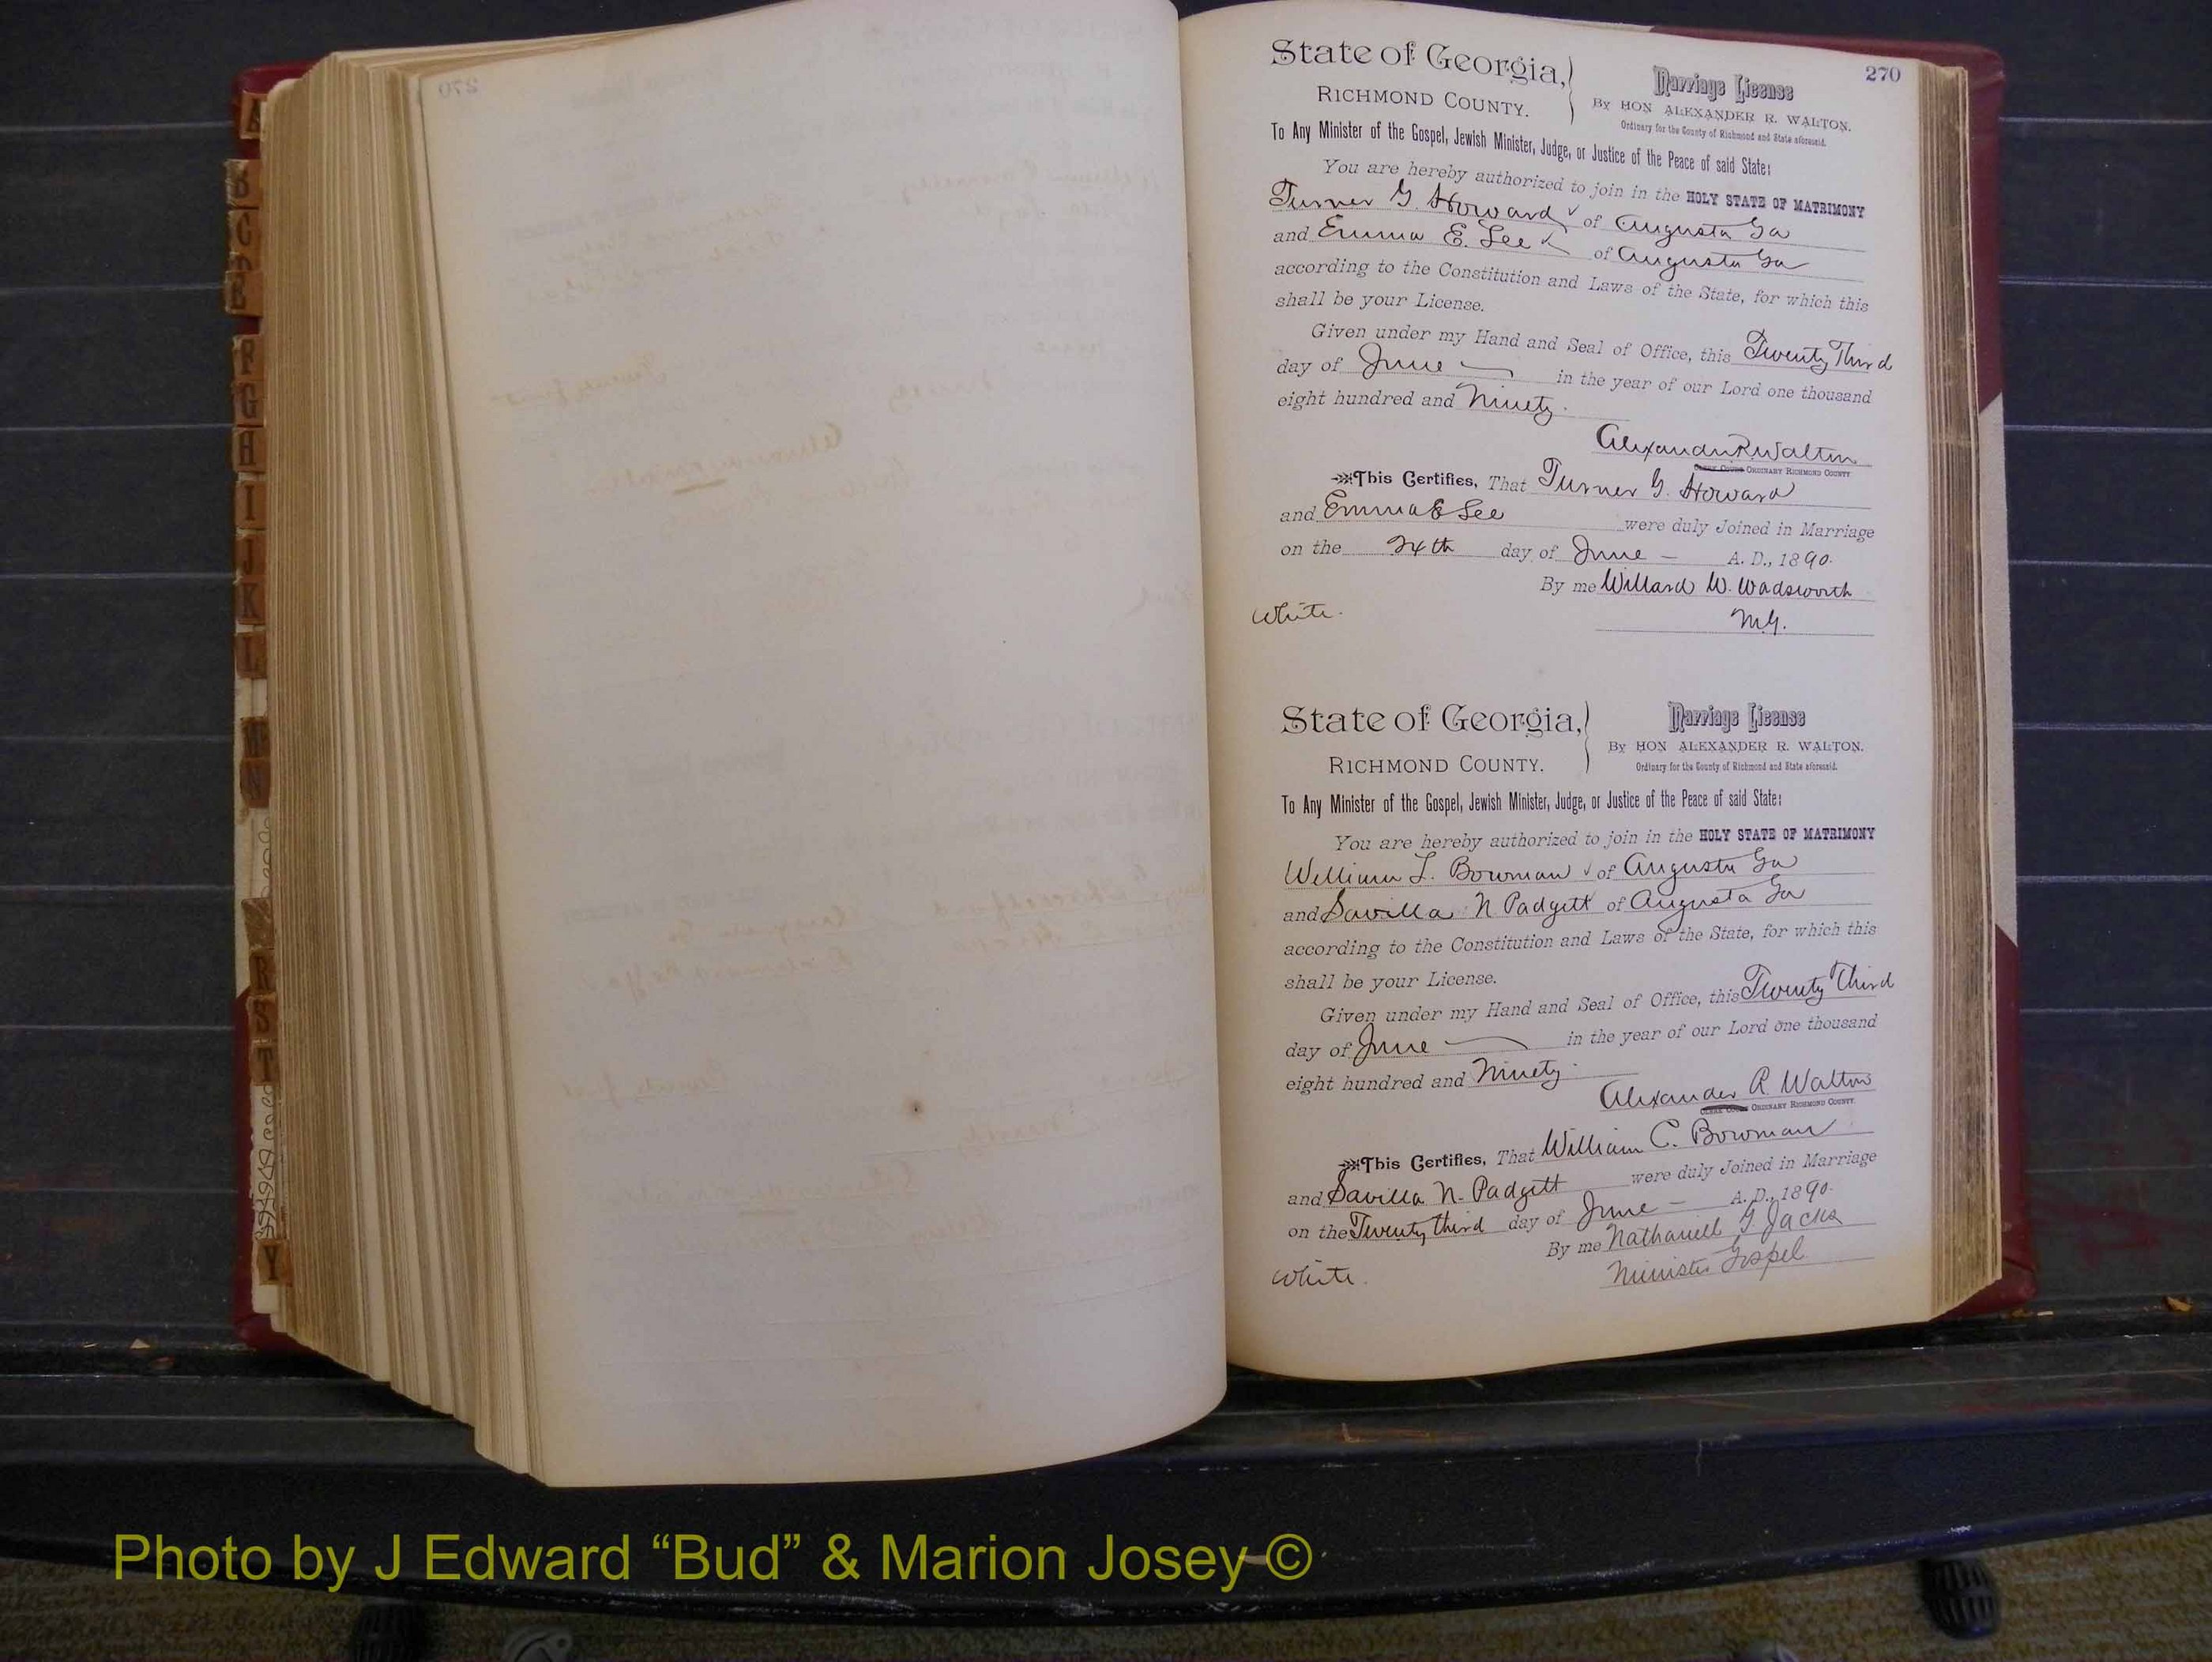 270
State of Georgia,
RICHMOND COUNTY.
Marriage License
By HON ALEXANDER R. WALTON.
Ordinary for the County of Richmond and State aforesaid.
To Any Minister of the Gospel, Jewish Minister, Judge, or Justice of the Peace of said State:
You are hereby authorized to join in the HOLY STATE OF MATRIMONY
Turner G. Howard of Augusta Ga
and Emma E. Lee of Augusta Ga
according to the Constitution and Laws of the State, for which this
shall be your License.
Given under my Hand and Seal of Office, this Twenty Third
day of June in the year of our Lord one thousand
eight hundred and Ninety.
Alexander R. Walton
ORDINARY RICHMOND COUNTY.
This Certifies, That Turner G. Howard
and Emma E Lee were duly Joined in Marriage
on the 24th day of June A. D., 1890.
By me Willard W. Wadsworth
White.
M.G.
State of Georgia,
RICHMOND COUNTY.
Marriage License
By HON ALEXANDER R. WALTON.
Ordinary for the County of Richmond and State aforesaid.
To Any Minister of the Gospel, Jewish Minister, Judge, or Justice of the Peace of said State:
You are hereby authorized to join in the HOLY STATE OF MATRIMONY
William L. Bowman of Augusta Ga
and Savilla N Padgett of Augusta Ga
according to the Constitution and Laws of the State, for which this
shall be your License.
Given under my Hand and Seal of Office, this Twenty Third
day of June in the year of our Lord one thousand
eight hundred and Ninety.
Alexander R. Walton
ORDINARY RICHMOND COUNTY.
This Certifies, That William C. Bowman
and Savilla N. Padgett were duly Joined in Marriage
on the Twenty third day of June A. D., 1890.
By me Nathaniell G. Jacks
White.
Minister Gospel
Photo by J Edward “Bud” & Marion Josey ©